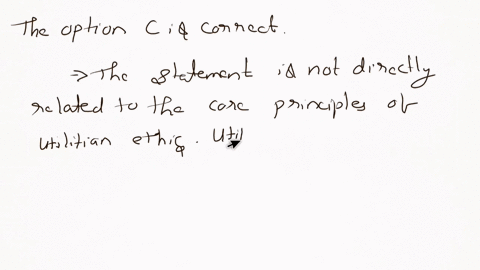 The option C is correct.
⇒ The statement is not directly
related to the core principles of
utilitian ethics. Util